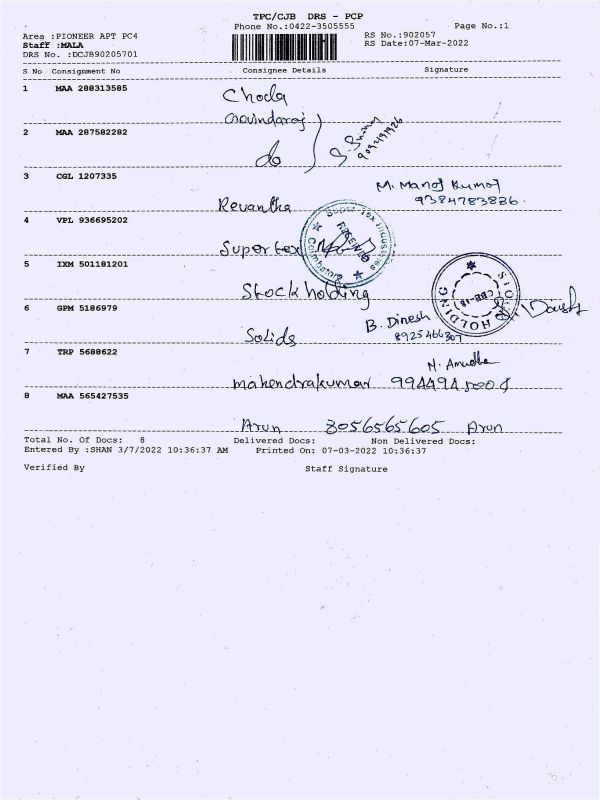 TPC/CJB DRS - PCP
Phone No.:0422-3505555 Page No.:1
Area :PIONEER APT PC4 RS No.:902057
Staff :MALA RS Date:07-Mar-2022
DRS No. :DCJB90205701
S No Consignment No Consignee Details Signature
1 MAA 288313585
Chola
Govindaraj
2 MAA 287582282
do
3 CGL 1207335
M. Manoj Kumar
9384783836
Revantha
4 VPL 936695202
Super Tex Industries
RECEIVED
Coimbatore
Supertex
5 IXM 501181201
Stock holding
HOLDING
6 GPM 5186979
B. Dinesh
8925466307
Solids
7 TRP 5688622
mahendrakumar
8 MAA 565427535
Arun 8056565605 Arun
Total No. Of Docs: 8 Delivered Docs: Non Delivered Docs:
Entered By :SHAN 3/7/2022 10:36:37 AM Printed On: 07-03-2022 10:36:37
Verified By Staff Signature